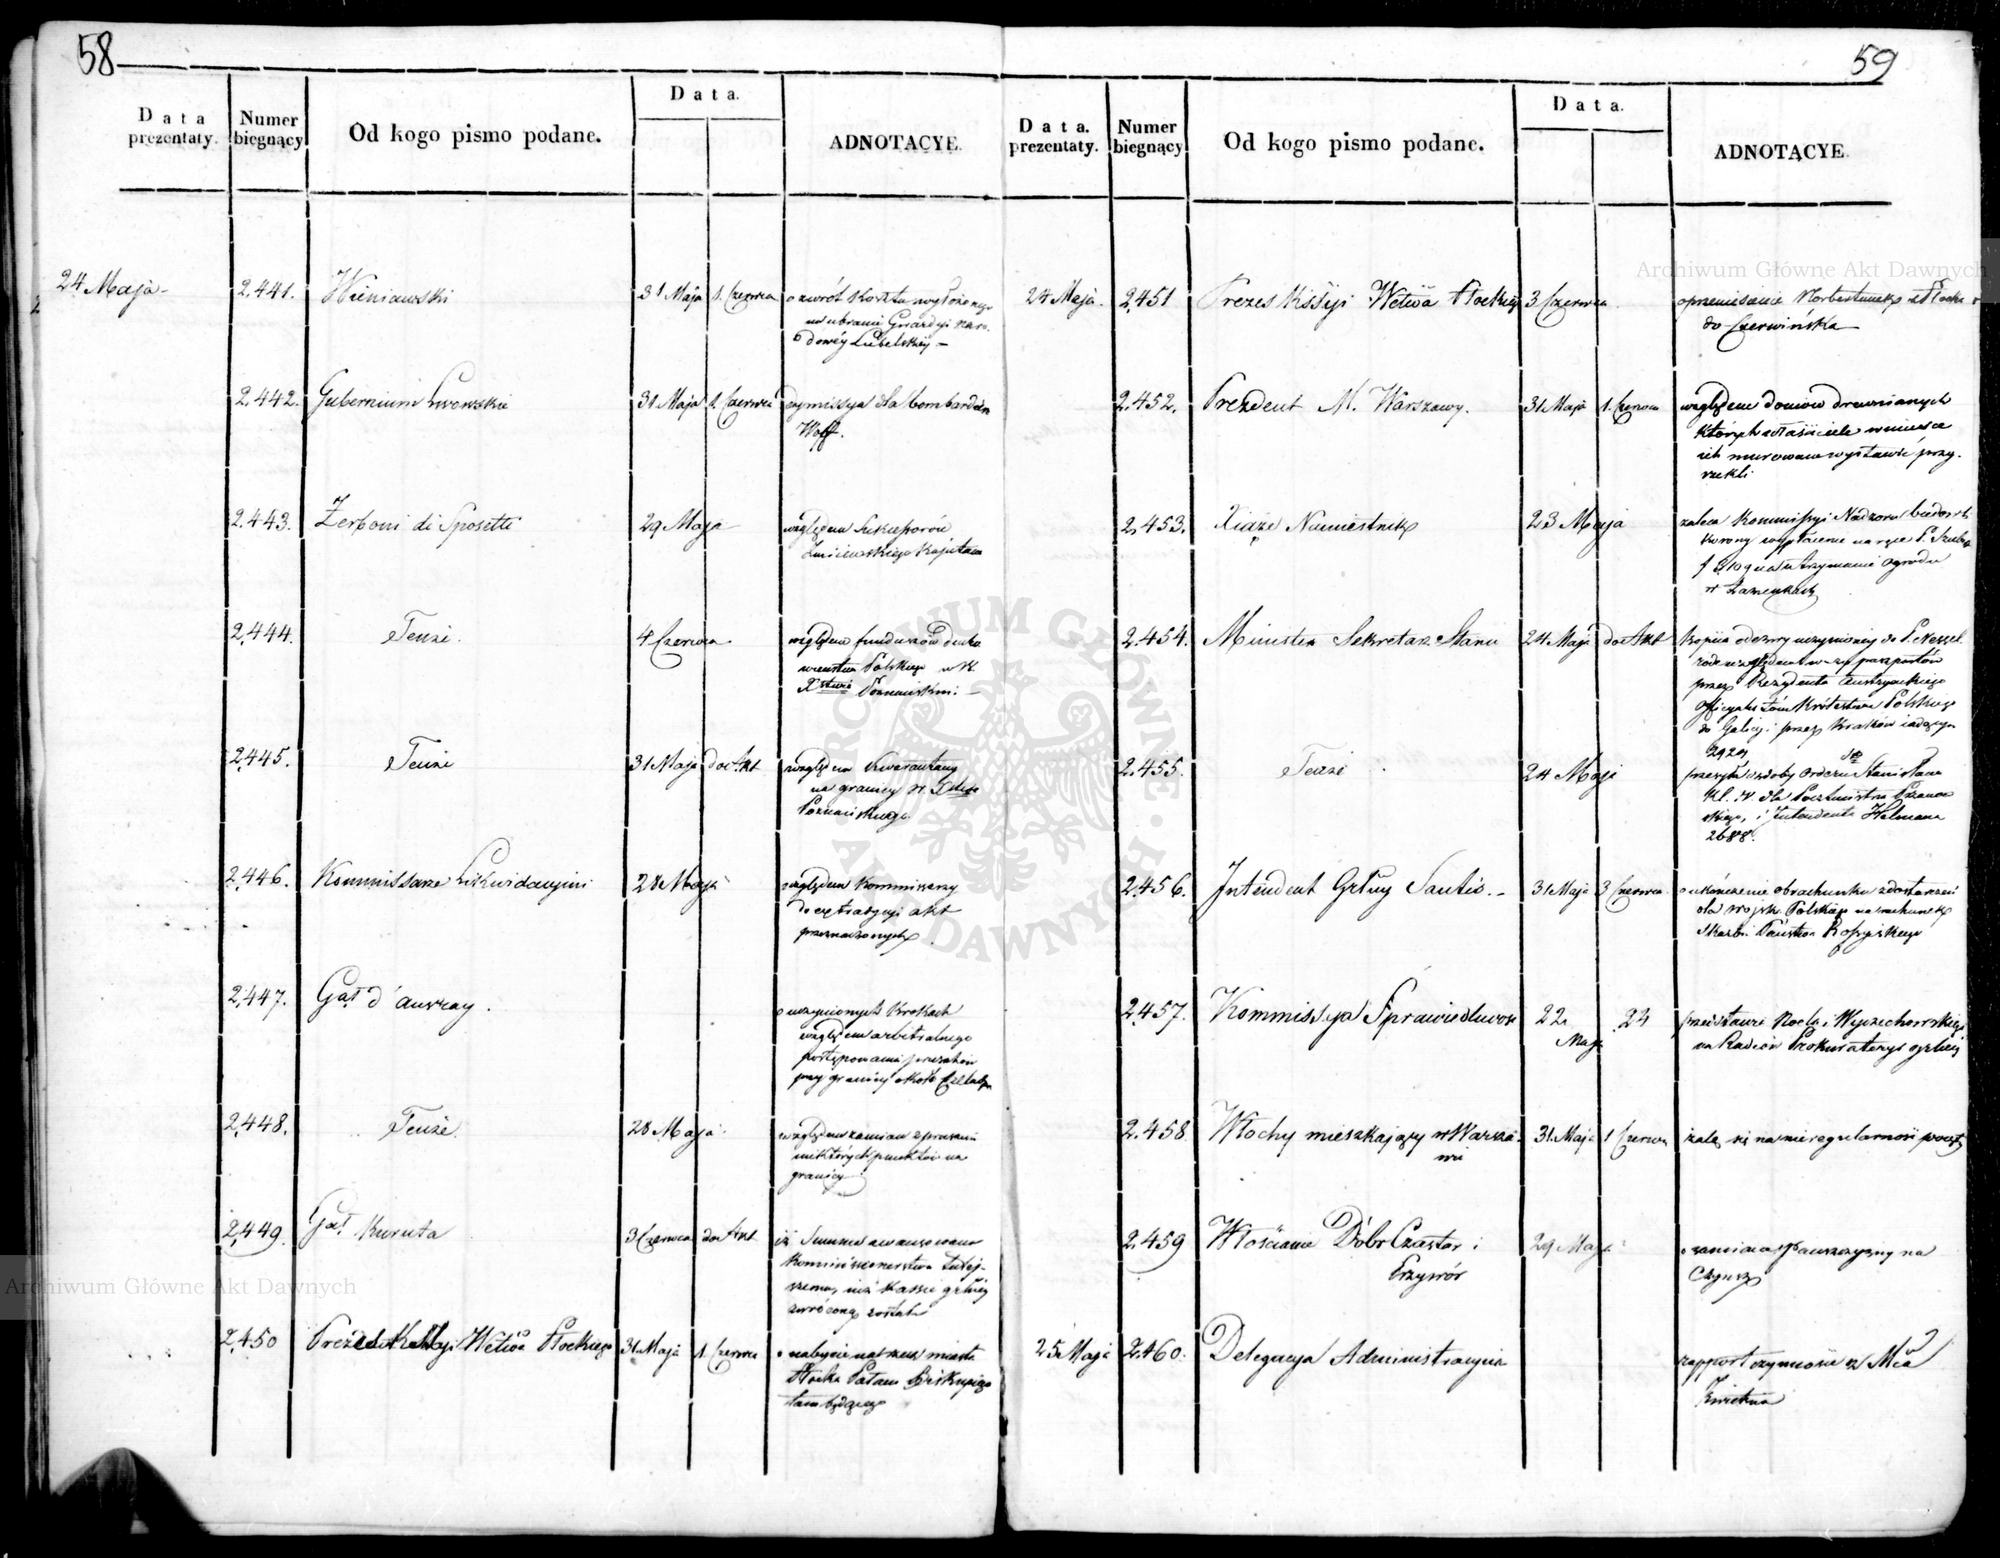 58
Data prezentaty.
Numer biegnący
Od kogo pismo podane.
Data.
ADNOTACYE.
24 Maja
2,441.
Wieniawski
31 Maja
1. Czerwca
o zwrót kosztu wyłożonego
na ubranie Gwardyi Naro-
dowéy Lubelskiéy
2,442.
Gubernium Lwowskie
31 Maja
1. Czerwca
dymissya dla Bombardiera
Wolff.
2,443.
Zerboni di Sposetti
29 Maja
względem Sukcessorów
Kapitana
2,444.
Tenże.
4 Czerwca
względem funduszów Ducho-
wieństwa Polskiego w W.
Xstwie Poznańskim.
2,445.
Tenże
31 Maja
do Akt
względem kwarantany
na granicy W. Xstwa
Poznańskiego.
2,446.
Kommissarze Likwidacyini
28 Maja
względem Kommissarzy
do extradycyi akt
przeznaczonych
2,447.
Gał d'Auvray.
o uczynionych krokach
względem arbitralnego
postępowania
przy granicy około
2,448.
Tenże.
28 Maja
względem zamian
niektórych punktów na
granicy
2,449.
Gał Kuruta
3 Czerwca
do Akt
iż Summa awansowana
Kommissoryatowi tutej-
szemu, już Kassie głnéy
zwróconą została
2,450
Prezes Kssyi Wdwa Płockiego
31 Maja
1. Czerwca
o nabycie na rzecz miasta
Płocka Pałacu Biskupiego
tam będącego
59
Data. prezentaty.
Numer biegnący
Od kogo pismo podane.
Data.
ADNOTACYE.
24 Maja.
2,451
Prezes Kssyi Wdwa Płockiéy
3 Czerwca
o przeniesienie Norbertanek z Płocka
do Czerwińska
2,452.
Prezdent M. Warszawy.
31 Maja
1. Czerwca
względem domów drewnianych
których właściciele w mieysce
ich murowane wystawić przy-
rzekli
2,453.
Xiąże Namiestnik
23 Maja
zaleca Kommissyi Nadzoru budowli
korony wypłacenie na ręce P.
na utrzymanie ogrodu
w Łazienkach
2,454.
Minister Sekretarz Stanu
24 Maja
do Akt
Kopiia odezwy uczynioney do P. Nessel-
rode względem wizy paszportów
przez Rezydenta Austryackiego
Officyalistom Królestwa Polskiego
do Galicyi przez Kraków iadącym
2,455.
Tenże
24 Maja
przesyła ozdoby orderu St. Stanisława
Kl. IV. dla Poczmistrza
i Intendenta
2688.
2,456.
Intendent Głny Santis.
31 Maja
3 Czerwca
o ukończenie obrachunku z dostarczeń
dla wojsk Polskiego na rachunek
Skarbu Państwa Rossyiskiego
2,457.
Kommissya Sprawiedliwości
22 Maja
24
przedstawia Wojciechowskiego
na Radców Prokuratoryi głnéy
2,458.
Włochy mieszkający w Warsza-
wie
31. Maja
1 Czerwca
żalą się na nieregularność poczty
2,459
Włościanie Dóbr Czastar i
Przywór
29 Maja
o zamianę pańszczyzny na
Czynsz
25 Maja
2,460.
Delegacya Administracyina
rapport czynności z Mca
Kwietnia
Archiwum Główne Akt Dawnych
Archiwum Główne Akt Dawnych
ARCHIWUM GŁÓWNE AKT DAWNYCH